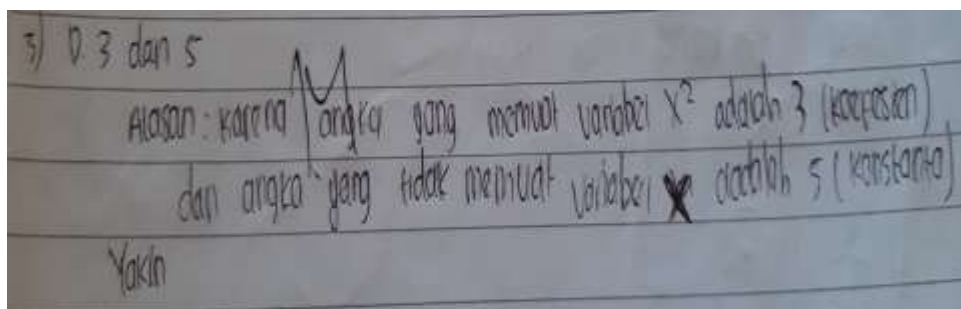 3) D. 3 dan 5
Alasan : karena angka yang memuat variabel x² adalah 3 (koefesien)
dan angka yang tidak memuat variabel x adalah 5 (konstanta)
Yakin